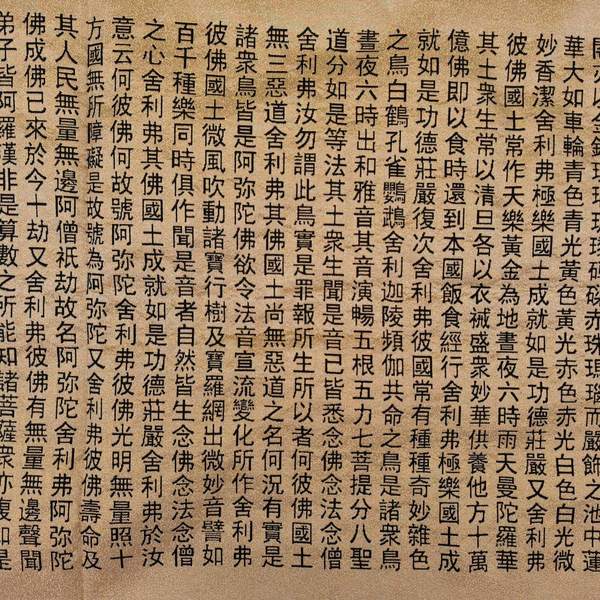 亦以金銀琉璃玻璃硨磲赤珠瑪瑙而嚴飾之池中蓮
華大如車輪青色青光黃色黃光赤色赤光白色白光微
妙香潔舍利弗極樂國土成就如是功德莊嚴又舍利弗
彼佛國土常作天樂黃金為地晝夜六時雨天曼陀羅華
其土衆生常以清旦各以衣祴盛衆妙華供養他方十萬
億佛即以食時還到本國飯食經行舍利弗極樂國土成
就如是功德莊嚴復次舍利弗彼國常有種種奇妙雜色
之鳥白鶴孔雀鸚鵡舍利迦陵頻伽共命之鳥是諸衆鳥
晝夜六時出和雅音其音演暢五根五力七菩提分八聖
道分如是等法其土衆生聞是音已皆悉念佛念法念僧
舍利弗汝勿謂此鳥實是罪報所生所以者何彼佛國土
無三惡道舍利弗其佛國土尚無惡道之名何況有實是
諸衆鳥皆是阿弥陀佛欲令法音宣流變化所作舍利弗
彼佛國土微風吹動諸寶行樹及寶羅網出微妙音譬如
百千種樂同時俱作聞是音者自然皆生念佛念法念僧
之心舍利弗其佛國土成就如是功德莊嚴舍利弗於汝
意云何彼佛何故號阿弥陀舍利弗彼佛光明無量照十
方國無所障礙是故號為阿弥陀又舍利弗彼佛壽命及
其人民無量無邊阿僧祇劫故名阿弥陀舍利弗阿弥陀
佛成佛已來於今十劫又舍利弗彼佛有無量無邊聲聞
弟子皆阿羅漢非是算數之所能知諸菩薩衆亦復如是